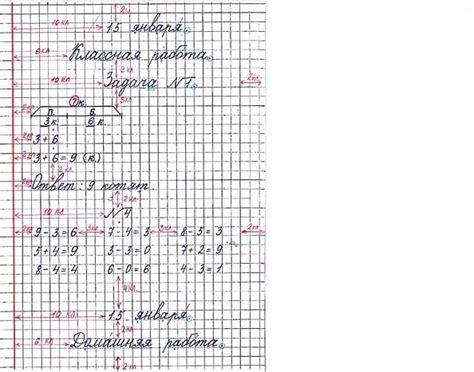 2 кл
10 кл 15 января.
6 кл Классная работа.
2 кл
10 кл Задача №1.
3 кл
? к.
П. Б.
3 к. 6 к.
3 + 6
3 + 6 = 9 (к.)
2 кл
Ответ: 9 котят.
2 кл
10 кл №4
9 – 3 = 6 3 кл 7 – 4 = 3 3 кл 8 – 5 = 3
5 + 4 = 9 3 – 3 = 0 7 + 2 = 9
8 – 4 = 4 6 – 0 = 6 4 – 3 = 1
4 кл
10 кл 15 января.
2 кл
6 кл Домашняя работа.